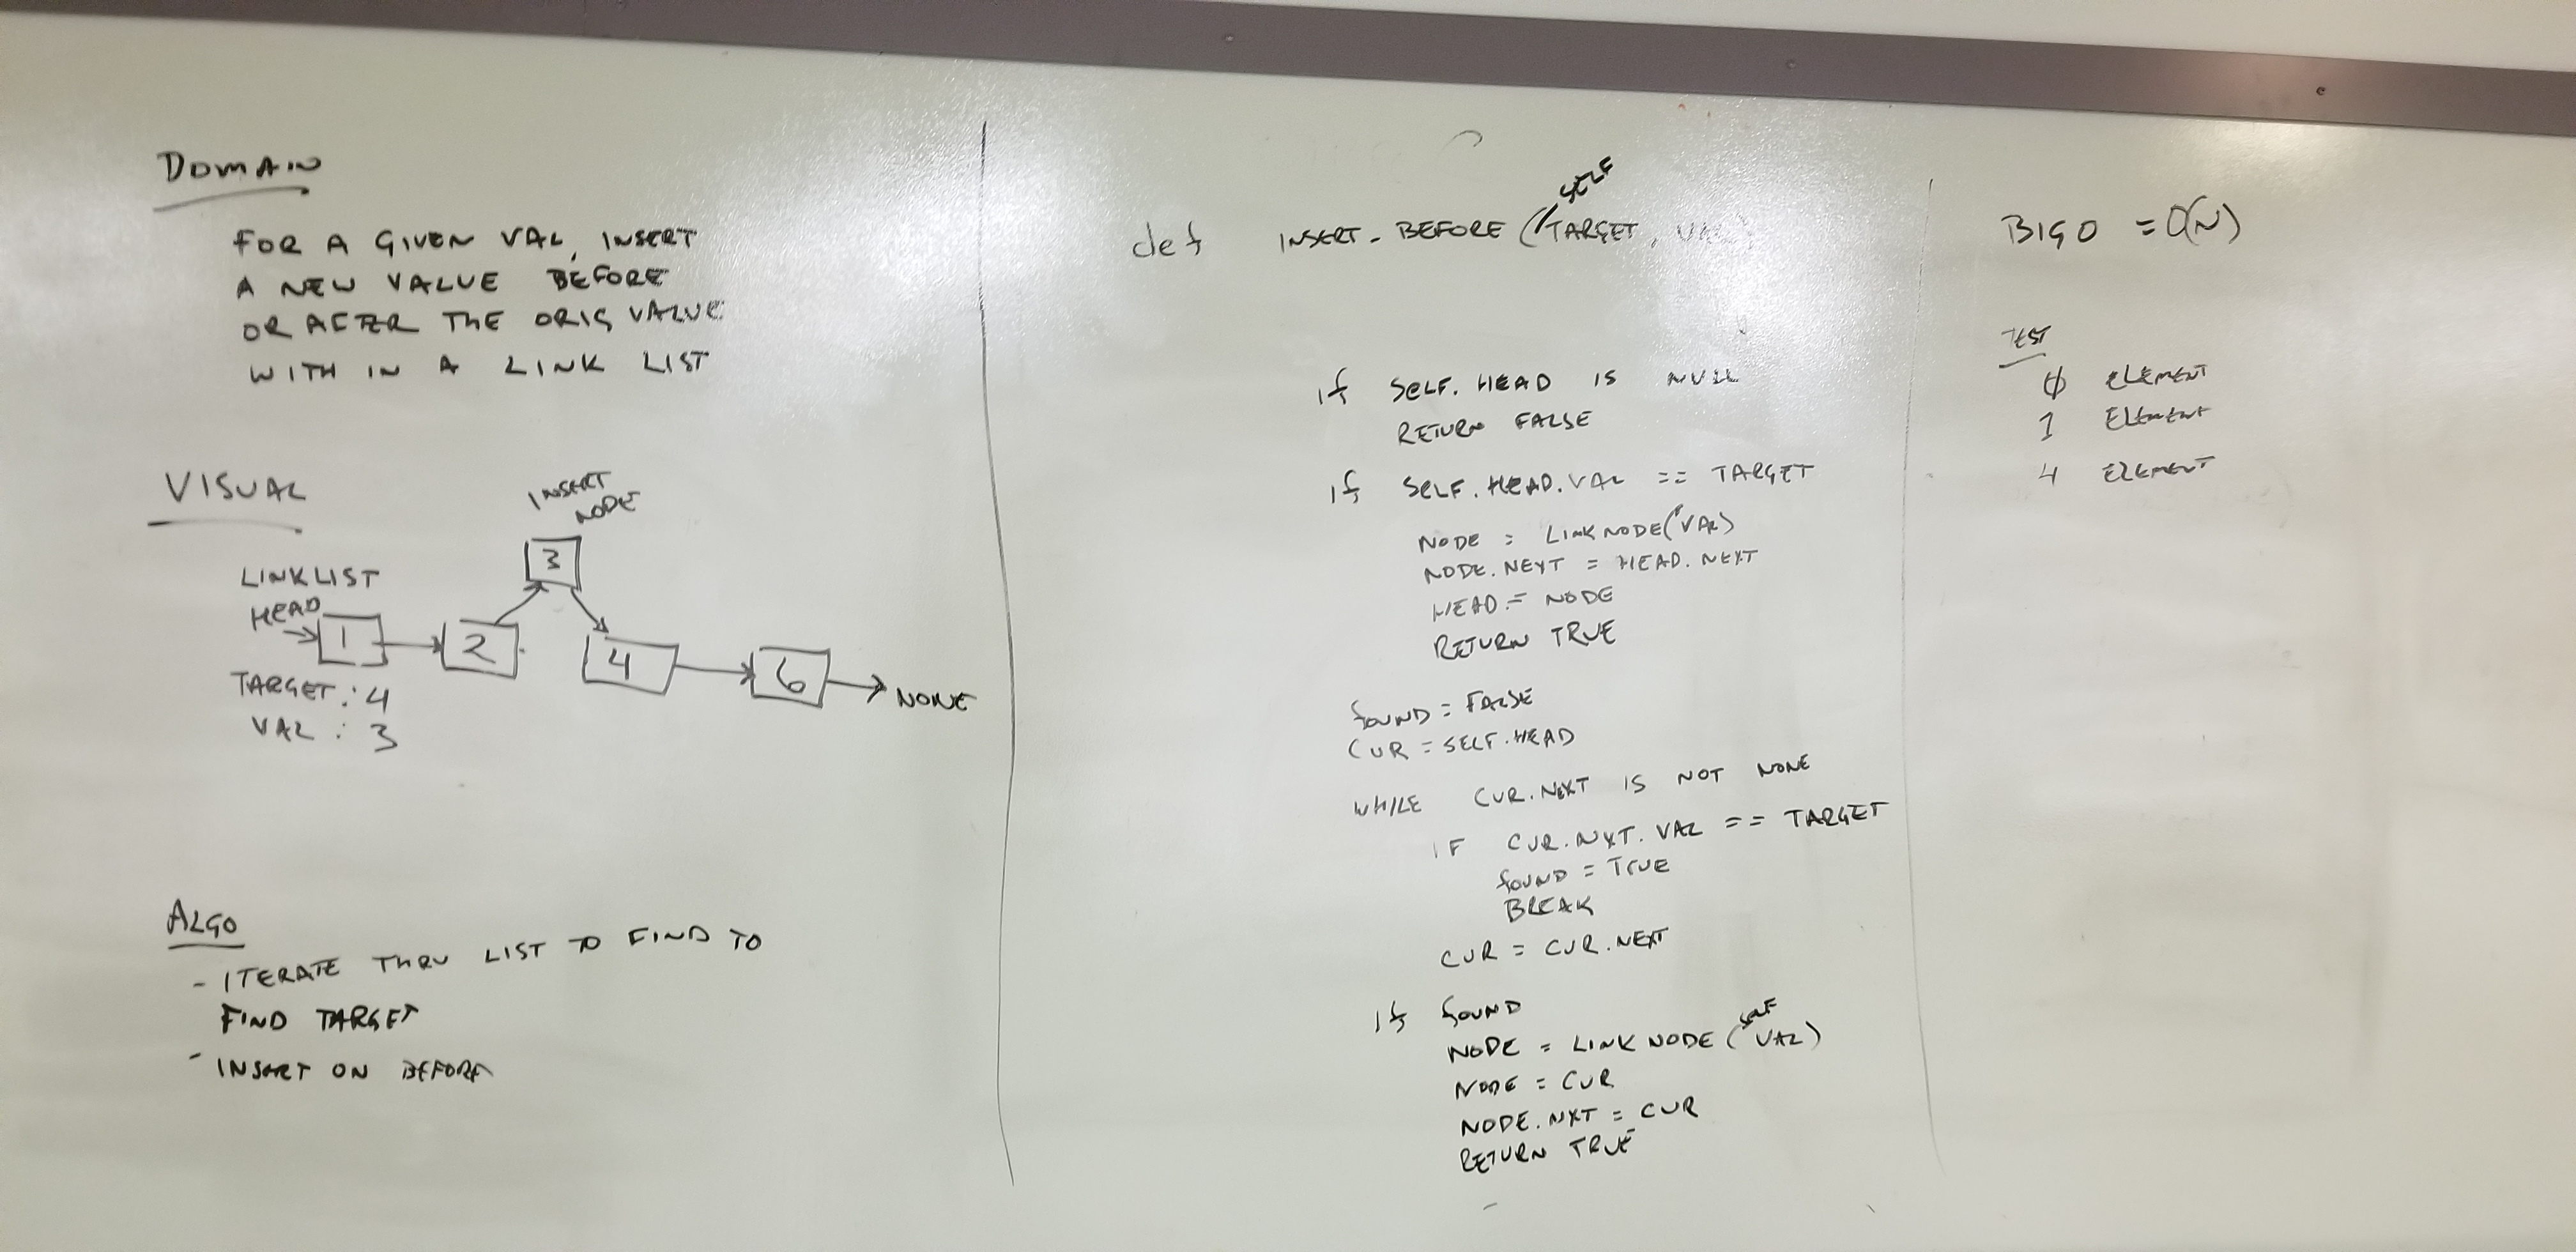 DOMAIN
FOR A GIVEN VAL, INSERT
A NEW VALUE BEFORE
OR AFTER THE ORIG VALUE
WITH IN A LINK LIST
VISUAL
INSERT
NODE
3
LINKLIST
HEAD
1 2 4 6 NONE
TARGET: 4
VAL: 3
ALGO
- ITERATE THRU LIST TO FIND TO
FIND TARGET
- INSERT ON BEFORE
SELF
def INSERT_BEFORE (TARGET, VAL)
if SELF.HEAD IS NULL
RETURN FALSE
if SELF.HEAD.VAL == TARGET
NODE = LINKNODE(VAL)
NODE.NEXT = HEAD.NEXT
HEAD = NODE
RETURN TRUE
FOUND = FALSE
CUR = SELF.HEAD
WHILE CUR.NEXT IS NOT NONE
IF CUR.NXT.VAL == TARGET
FOUND = TRUE
BREAK
CUR = CUR.NEXT
If FOUND
SELF
NODE = LINKNODE(VAL)
NODE = CUR
NODE.NXT = CUR
RETURN TRUE
BIG O = O(N)
TEST
0 ELEMENT
1 ELEMENT
4 ELEMENT